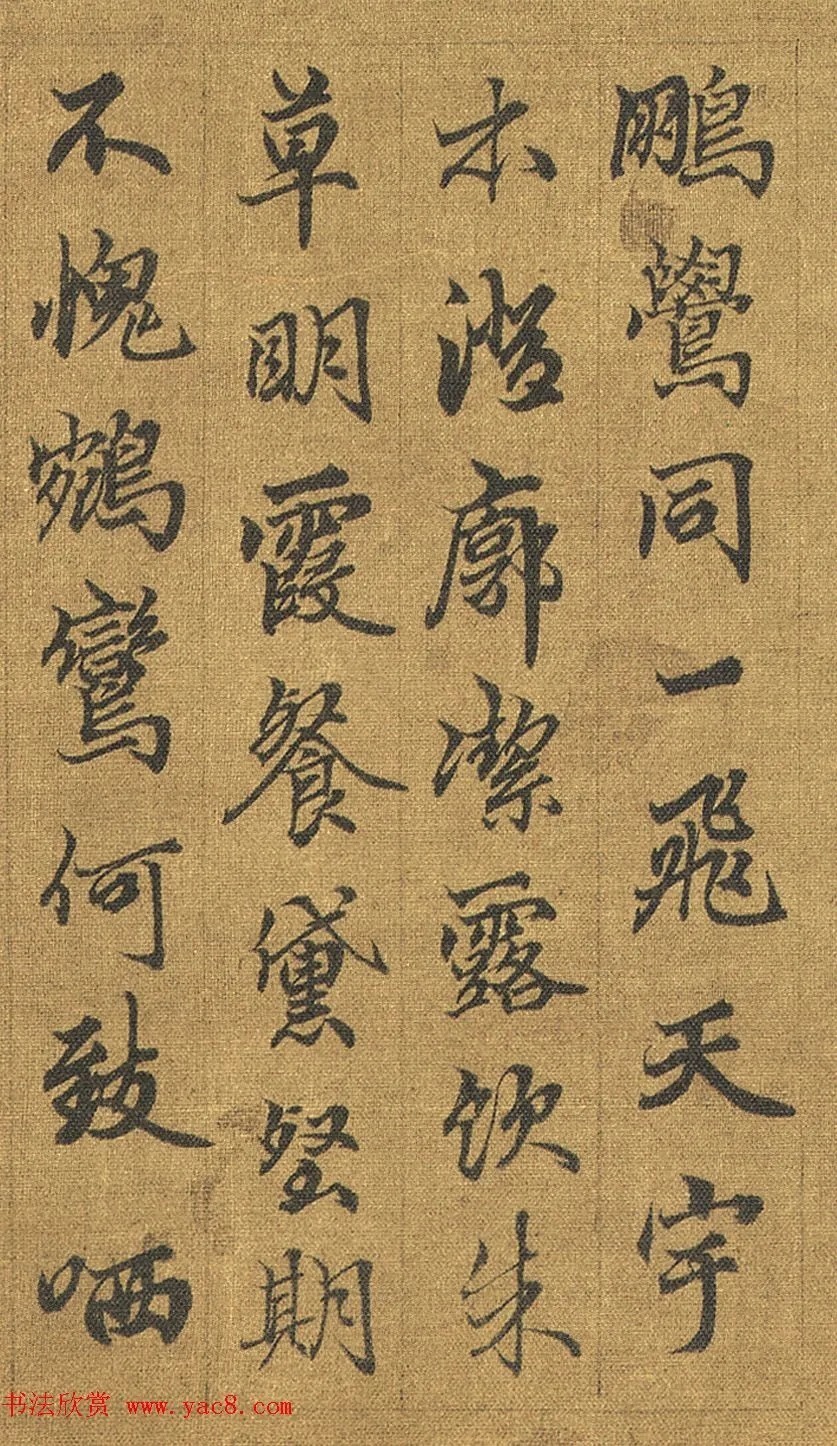 鵬鷽同一飛天宇
本澄廓潔露飲朱
草明霞餐黛壑期
不愧鶴鸞何致哂
书法欣赏 www.yac8.com